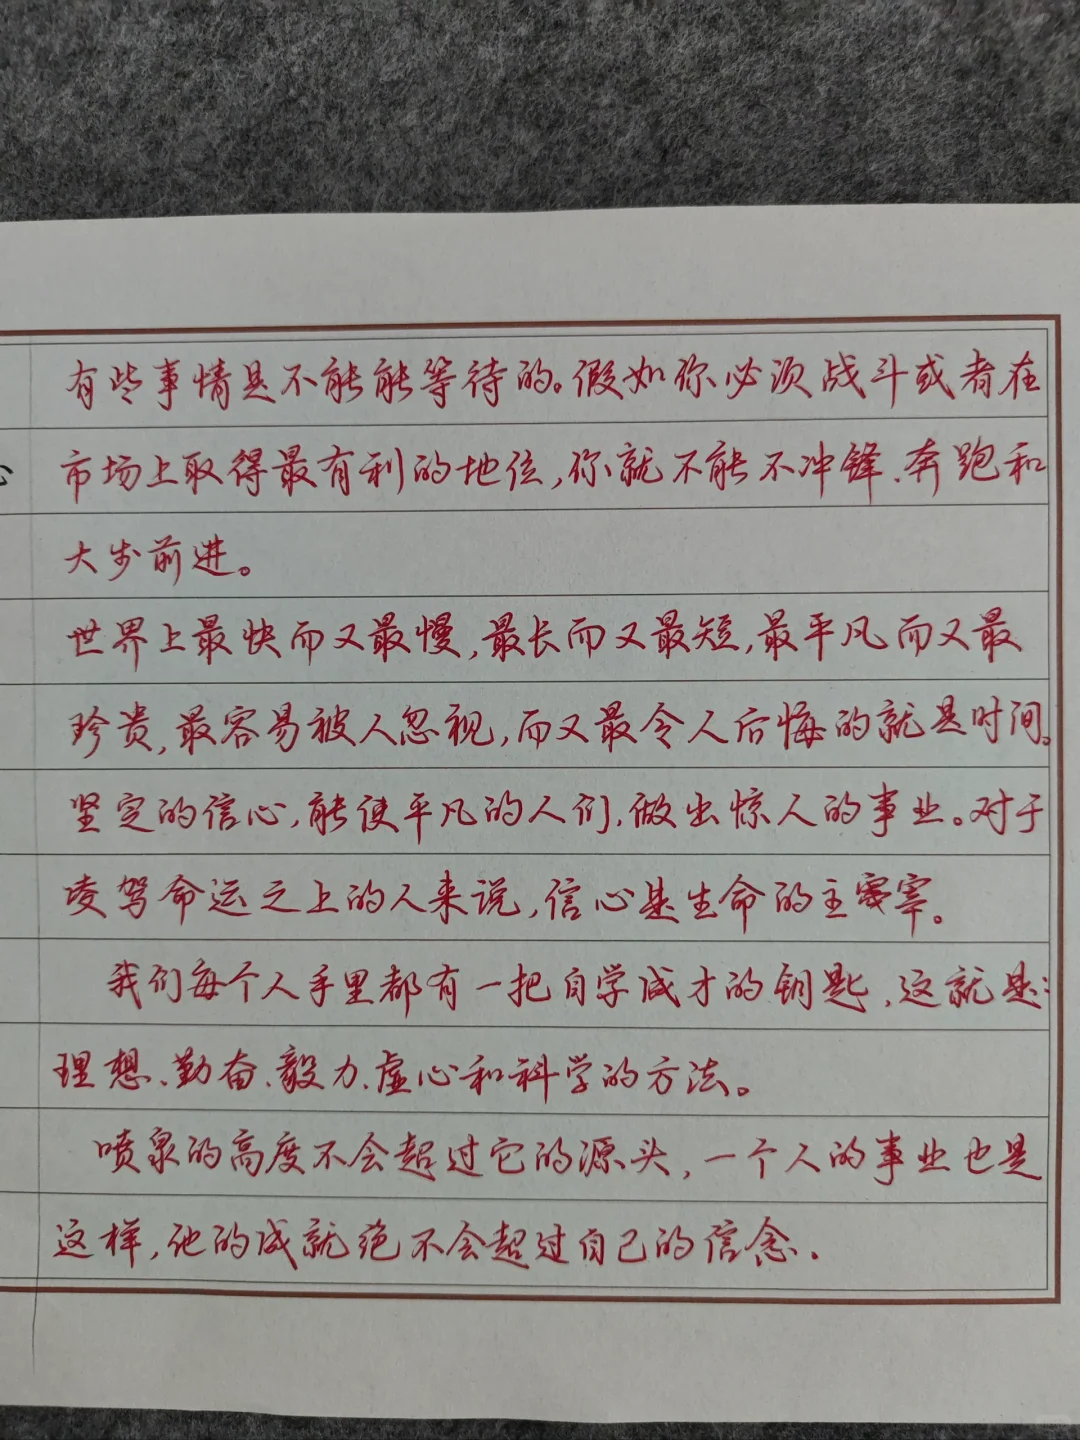 有些事情是不能能等待的。假如你必须战斗或者在
市场上取得最有利的地位,你就不能不冲锋、奔跑和
大步前进。
世界上最快而又最慢,最长而又最短,最平凡而又最
珍贵,最容易被人忽视,而又最令人后悔的就是时间。
坚定的信心,能使平凡的人们,做出惊人的事业。对于
凌驾命运之上的人来说,信心是生命的主宰。
我们每个人手里都有一把自学成才的钥匙,这就是:
理想、勤奋、毅力、虚心和科学的方法。
喷泉的高度不会超过它的源头,一个人的事业也是
这样,他的成就绝不会超过自己的信念.